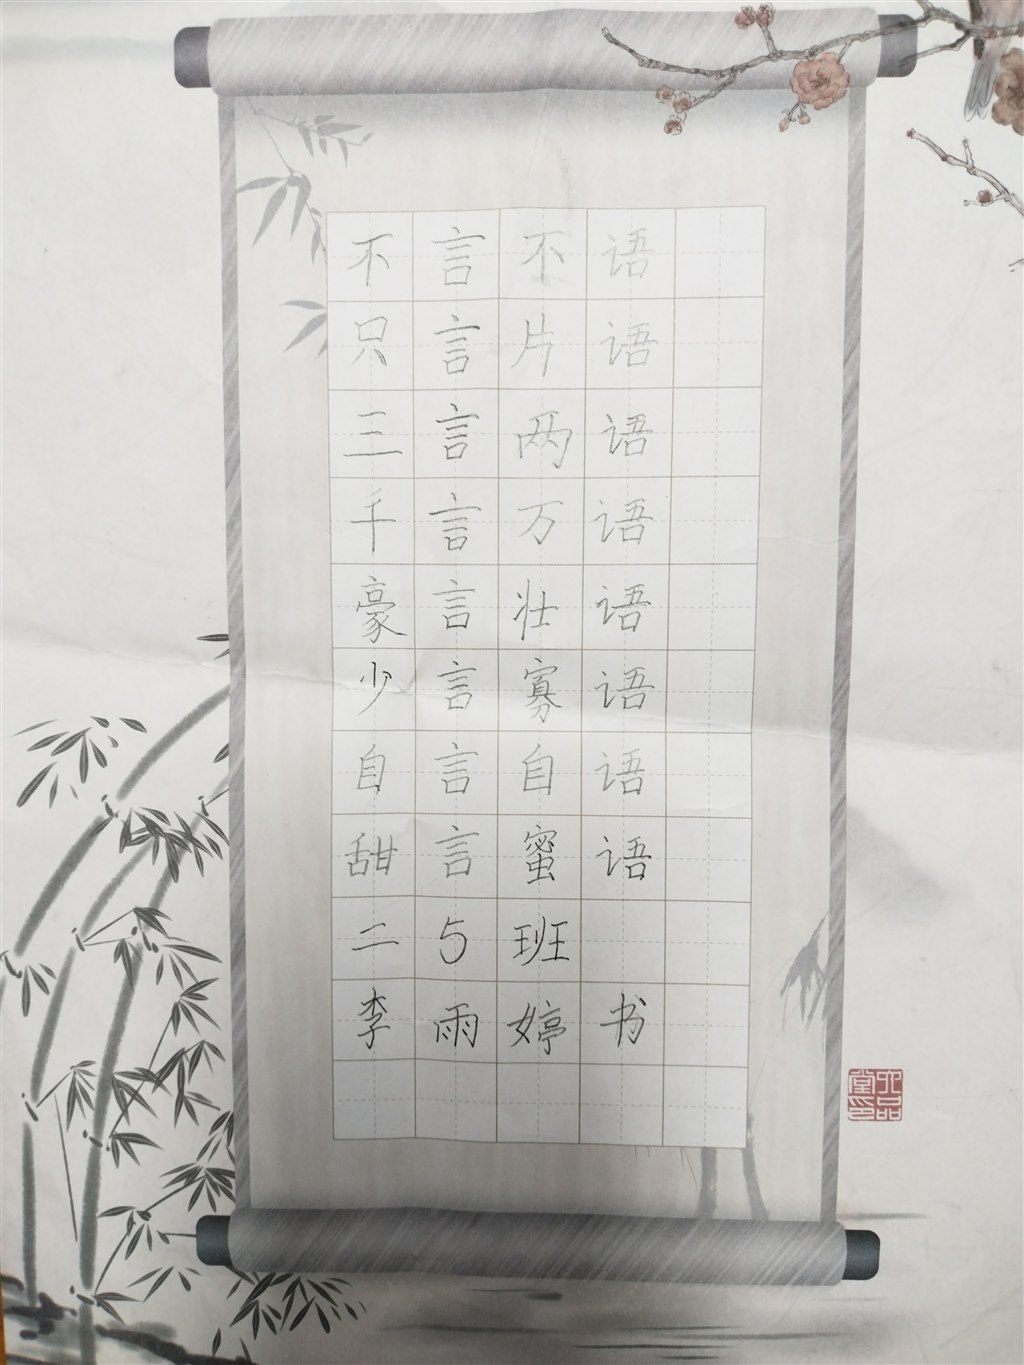 不言不语
只言片语
三言两语
千言万语
豪言壮语
少言寡语
自言自语
甜言蜜语
二5班
李雨婷书